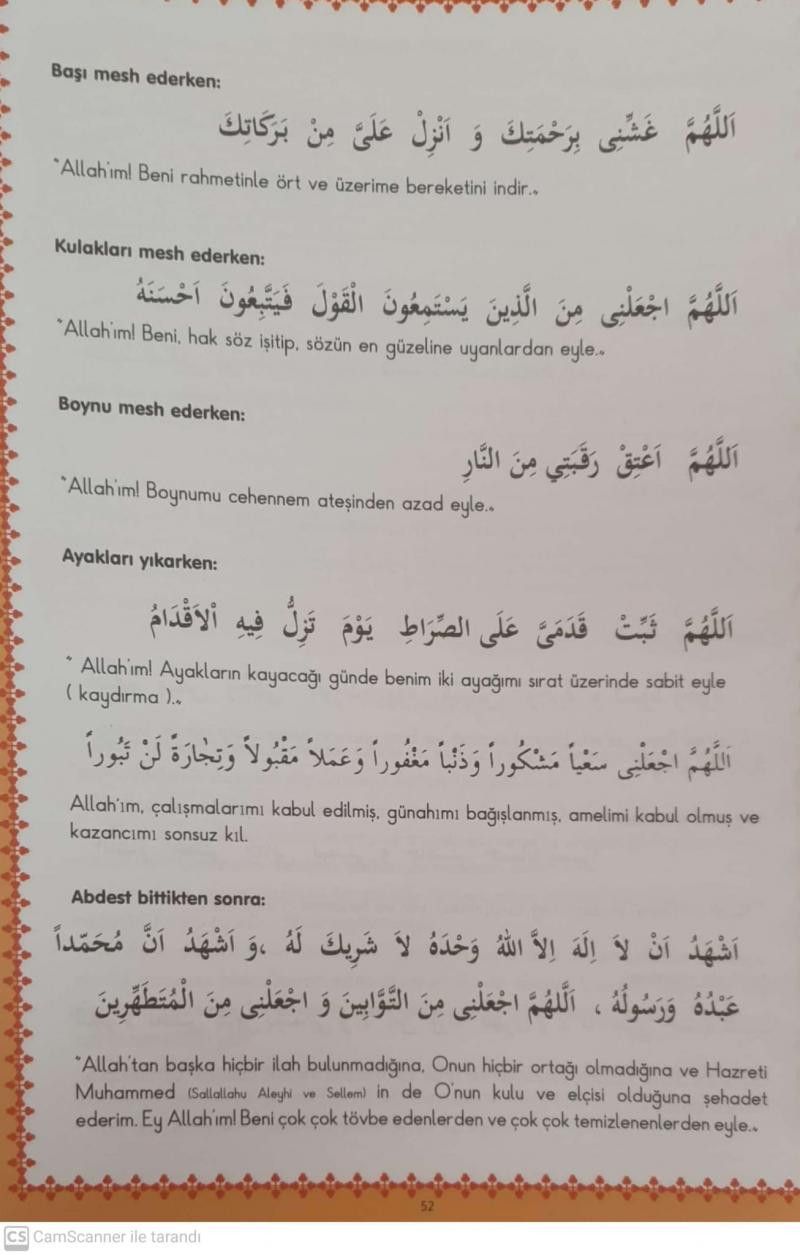 Başı mesh ederken:
اَللّٰهُمَّ غَشِّنِى بِرَحْمَتِكَ وَ اَنْزِلْ عَلَىَّ مِنْ بَرَكَاتِكَ
"Allah'ım! Beni rahmetinle ört ve üzerime bereketini indir.„
Kulakları mesh ederken:
اَللّٰهُمَّ اجْعَلْنِى مِنَ الَّذِينَ يَسْتَمِعُونَ الْقَوْلَ فَيَتَّبِعُونَ اَحْسَنَهُ
"Allah'ım! Beni, hak söz işitip, sözün en güzeline uyanlardan eyle.„
Boynu mesh ederken:
اَللّٰهُمَّ اَعْتِقْ رَقَبَتِي مِنَ النَّارِ
"Allah'ım! Boynumu cehennem ateşinden azad eyle.„
Ayakları yıkarken:
اَللّٰهُمَّ ثَبِّتْ قَدَمَىَّ عَلَى الصِّرَاطِ يَوْمَ تَزِلُّ فِيهِ اْلاَقْدَامُ
" Allah'ım! Ayakların kayacağı günde benim iki ayağımı sırat üzerinde sabit eyle
( kaydırma ).„
اَللّٰهُمَّ اجْعَلْنِى سَعْياً مَشْكُوراً وَذَنْباً مَغْفُوراً وَعَمَلاً مَقْبُولاً وَتِجَارَةً لَنْ تَبُوراً
Allah'ım, çalışmalarımı kabul edilmiş, günahımı bağışlanmış, amelimi kabul olmuş ve
kazancımı sonsuz kıl.
Abdest bittikten sonra:
اَشْهَدُ اَنْ لاَ اِلَهَ اِلاَّ اللهُ وَحْدَهُ لاَ شَرِيكَ لَهُ ،وَ اَشْهَدُ اَنَّ مُحَمَّداً
عَبْدُهُ وَرَسُولُهُ ، اَللّٰهُمَّ اجْعَلْنِى مِنَ التَّوَّابِينَ وَ اجْعَلْنِى مِنَ الْمُتَطَهِّرِينَ
"Allah'tan başka hiçbir ilah bulunmadığına, Onun hiçbir ortağı olmadığına ve Hazreti
Muhammed (Sallallahu Aleyhi ve Sellem) in de O'nun kulu ve elçisi olduğuna şehadet
ederim. Ey Allah'ım! Beni çok çok tövbe edenlerden ve çok çok temizlenenlerden eyle.„
52
CS CamScanner ile tarandı